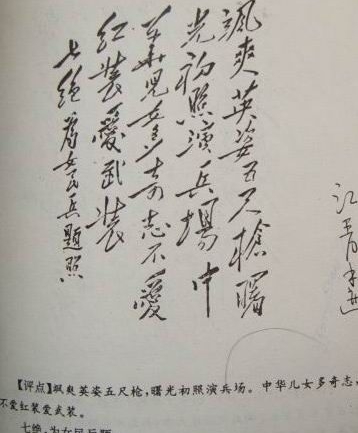 江青手迹
颯爽英姿五尺槍曙
光初照演兵場中
華兒女多奇志不愛
红装愛武装
七绝为女民兵題照
【评点】飒爽英姿五尺枪,曙光初照演兵场。中华儿女多奇志,
不爱红装爱武装。
七绝,为女民兵题